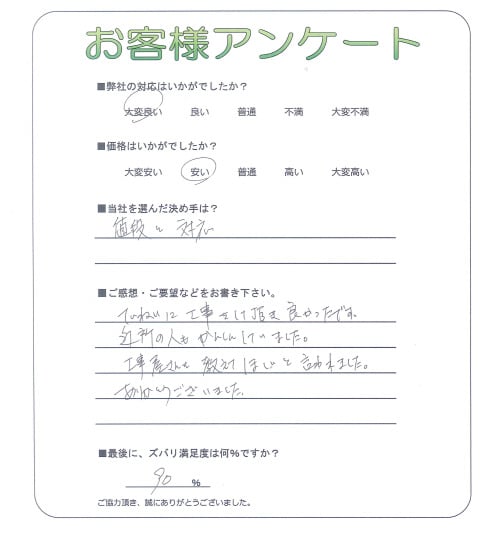 お客様アンケート
■弊社の対応はいかがでしたか？
大変良い 良い 普通 不満 大変不満
■価格はいかがでしたか？
大変安い 安い 普通 高い 大変高い
■当社を選んだ決め手は？
値段と対応
■ご感想・ご要望などをお書き下さい。
ていねいに工事をして頂き良かったです。
近所の人もかんしんしていました。
工事屋さんを教えてほしいと言われました。
ありがとうございました。
■最後に、ズバリ満足度は何％ですか？
90 %
ご協力頂き、誠にありがとうございました。